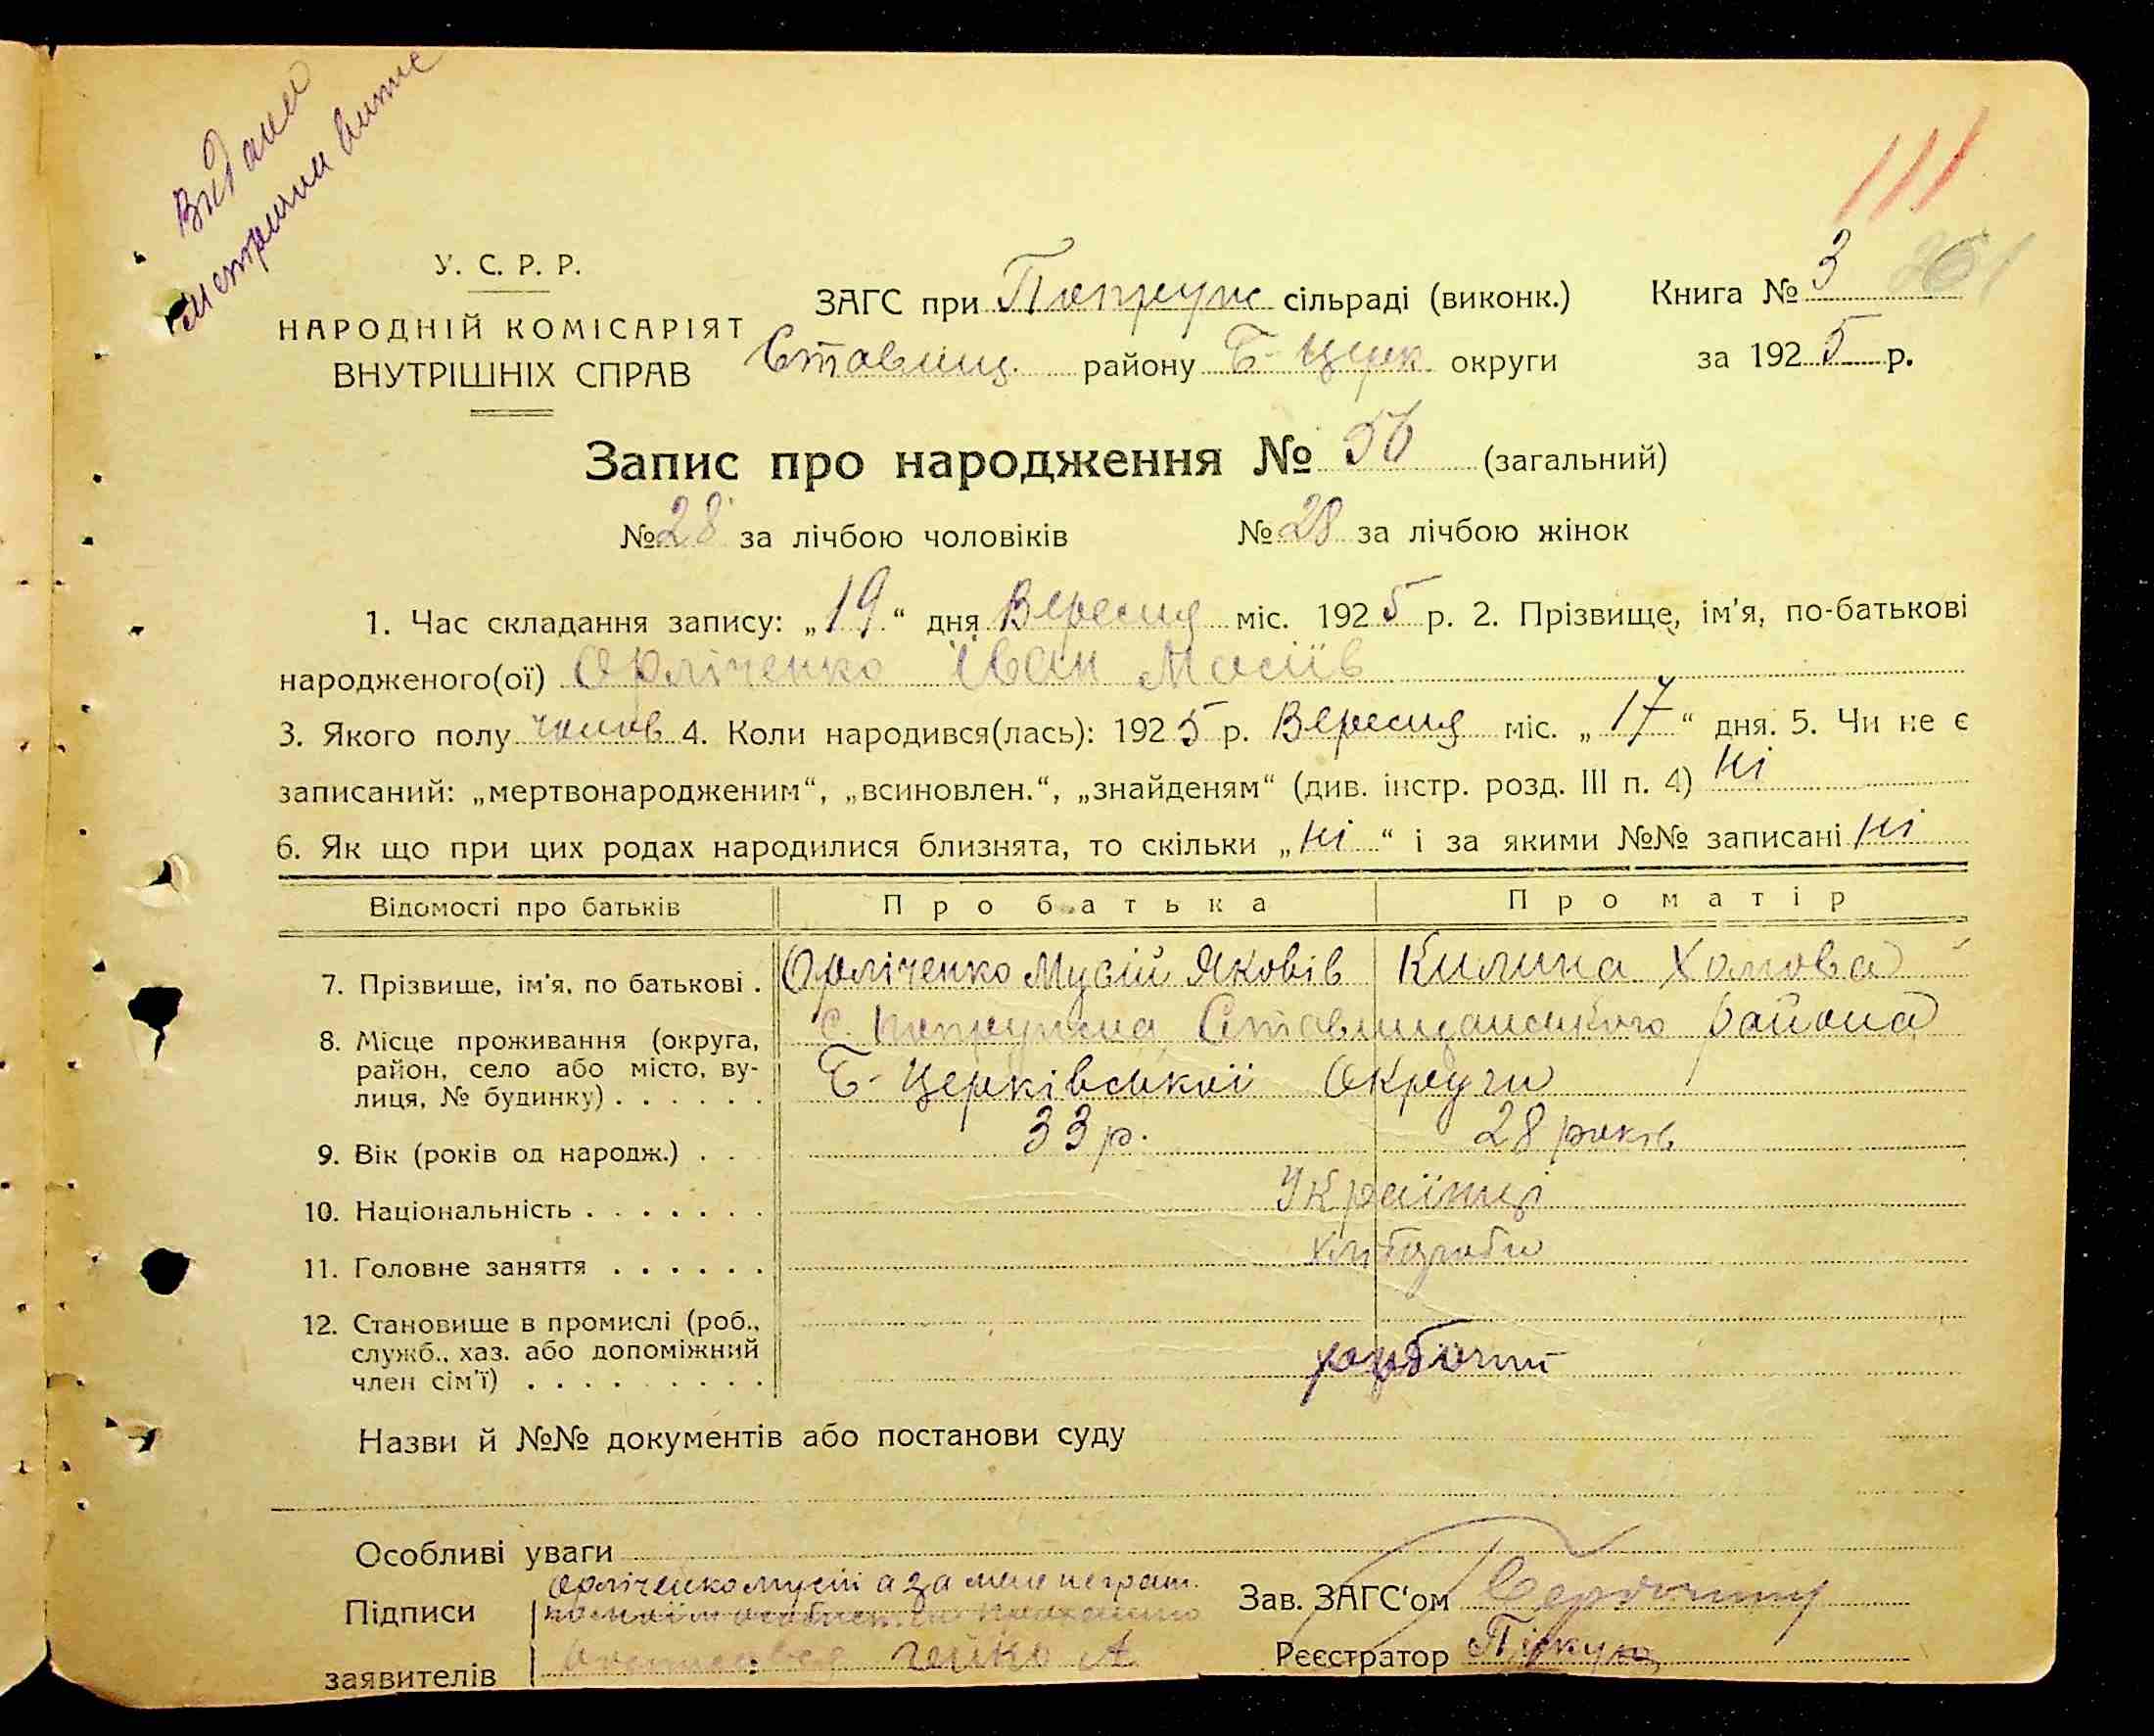 Видана
метрична
111
У. С. Р. Р.
НАРОДНІЙ КОМІСАРІЯТ
ВНУТРІШНІХ СПРАВ
ЗАГС при Попруж сільраді (виконк.) Книга № 3
Ставищ. району Б-Церк. округи за 1925 р.
Запис про народження № 56 (загальний)
№ 28 за лічбою чоловіків № 28 за лічбою жінок
1. Час складання запису: „19“ дня Вересня міс. 1925 р. 2. Прізвище, ім'я, по-батькові
народженого(ої) Орліченко Іван Мосіїв
3. Якого полу чолов 4. Коли народився(лась): 1925 р. Вересня міс. „17“ дня. 5. Чи не є
записаний: „мертвонародженим“, „всиновлен.“, „знайденям“ (див. інстр. розд. III п. 4) ні
6. Як що при цих родах народилися близнята, то скільки „ні“ і за якими №№ записані ні
Відомості про батьків Про батька Про матір
7. Прізвище, ім'я, по батькові . Орліченко Мусій Яковів Килина Хомова
8. Місце проживання (округа, район, село або місто, ву-
лиця, № будинку) . . . . . . с. Попружна Ставищанського района
Б-Церківської Округи
9. Вік (років од народж.) . . 33 р. 28 років
10. Національність . . . . . . . Українці
11. Головне заняття . . . . . . хліборобы
12. Становище в промислі (роб.,
служб., хаз. або допоміжний
член сім'ї) . . . . . . . . . робочий
Назви й №№ документів або постанови суду
Особливі уваги
Підписи Орліченко Мусій а за мене неграм.
заявителів Гейко А
Зав. ЗАГС'ом
Реєстратор